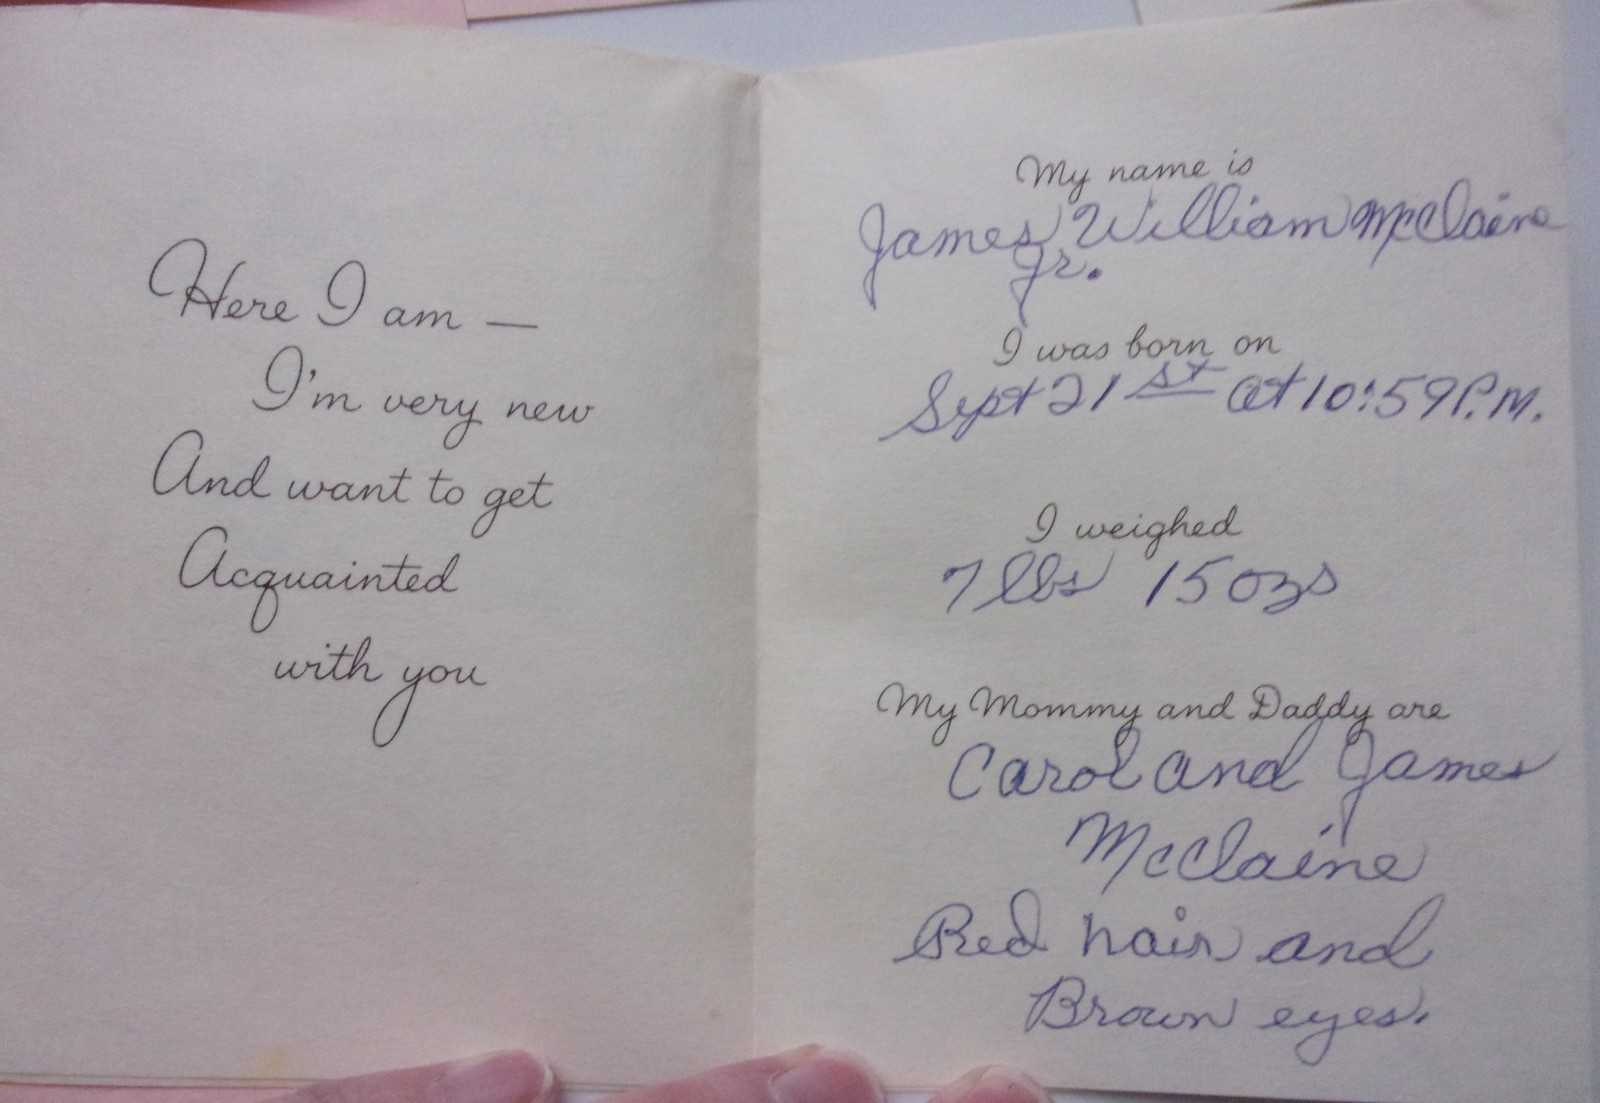 Here I am —
I'm very new
And want to get
Acquainted
with you
My name is
James William McClaine
Jr.
I was born on
Sept 21st at 10:59 P.M.
I weighed
7 lbs 15 ozs
My Mommy and Daddy are
Carol and James
McClaine
Red hair and
Brown eyes.